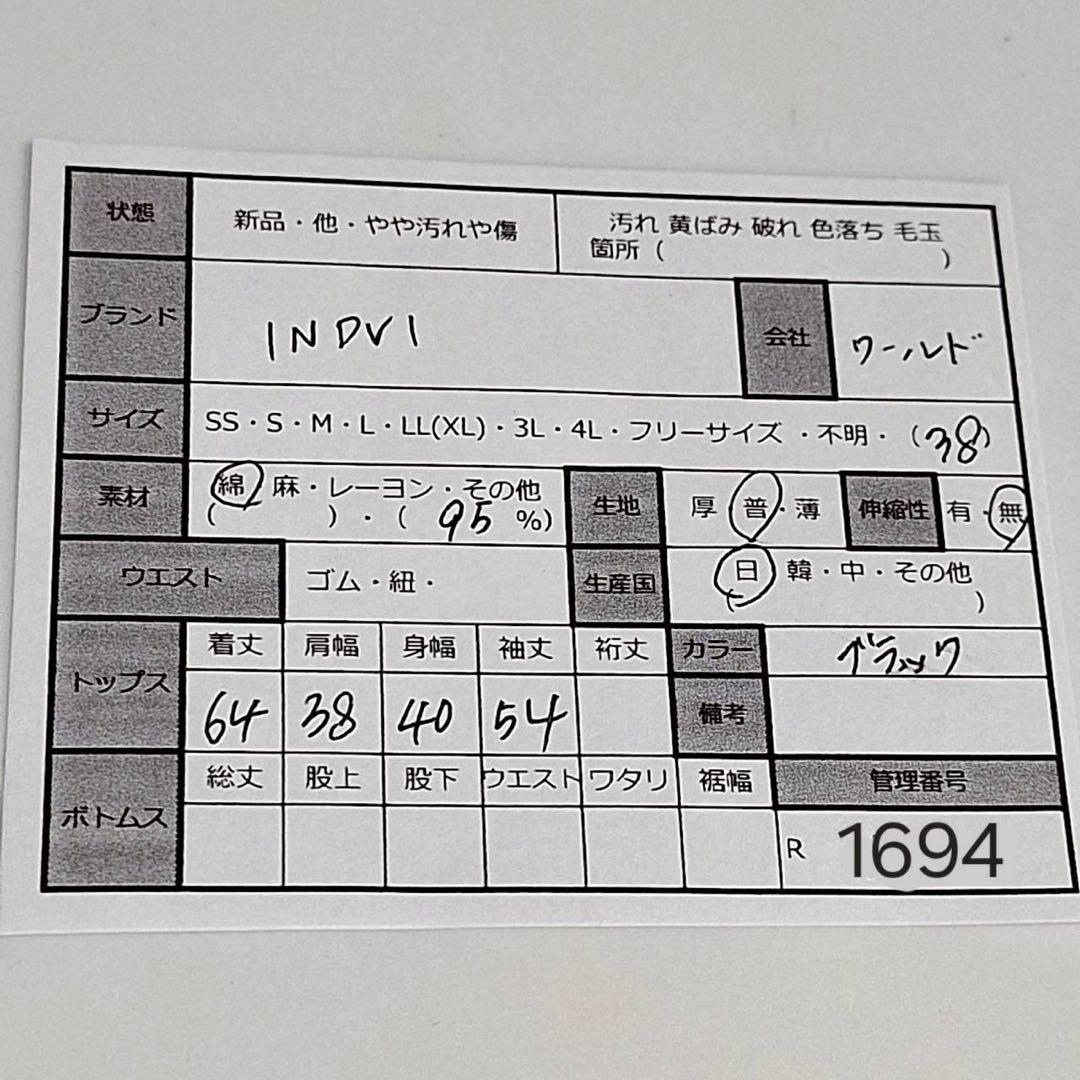 状態 新品・他・やや汚れや傷 汚れ 黄ばみ 破れ 色落ち 毛玉
箇所（ ）
ブランド INDVI 会社 ワールド
サイズ SS・S・M・L・LL(XL)・3L・4L・フリーサイズ ・不明・（38）
素材 綿 麻・レーヨン・その他 生地 厚 普・薄 伸縮性 有・無
( )・( 95 %)
ウエスト ゴム・紐・ 生産国 日 韓・中・その他
( )
トップス 着丈 肩幅 身幅 袖丈 裄丈 カラー ブラック
64 38 40 54 備考
ボトムス 総丈 股上 股下 ウエスト ワタリ 裾幅 管理番号
R 1694